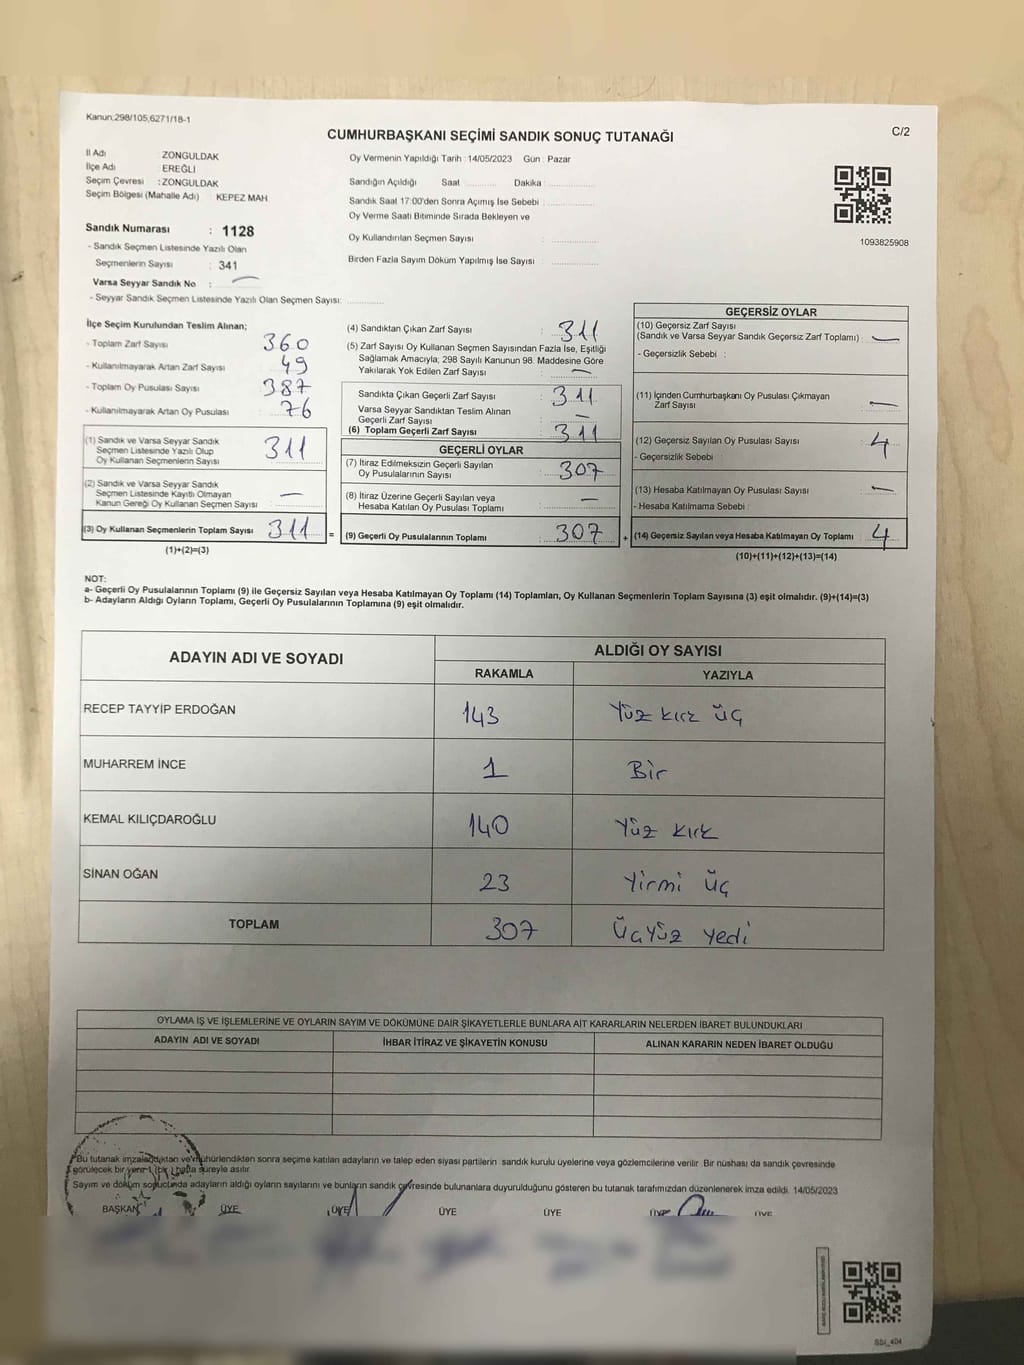 Kanun;298/105,6271/18-1
CUMHURBAŞKANI SEÇİMİ SANDIK SONUÇ TUTANAĞI
C/2
İl Adı ZONGULDAK
İlçe Adı : EREĞLİ
Seçim Çevresi : ZONGULDAK
Seçim Bölgesi (Mahalle Adı) KEPEZ MAH
Sandık Numarası : 1128
- Sandık Seçmen Listesinde Yazılı Olan
Seçmenlerin Sayısı : 341
Varsa Seyyar Sandık No : —
- Seyyar Sandık Seçmen Listesinde Yazılı Olan Seçmen Sayısı:
Oy Vermenin Yapıldığı Tarih : 14/05/2023 Gün : Pazar
Sandığın Açıldığı Saat Dakika :
Sandık Saat 17:00'den Sonra Açımış İse Sebebi :
Oy Verme Saati Bitiminde Sırada Bekleyen ve
Oy Kullandırılan Seçmen Sayısı :
Birden Fazla Sayım Döküm Yapılmış İse Sayısı :
1093825908
İlçe Seçim Kurulundan Teslim Alınan;
- Toplam Zarf Sayısı : 360
- Kullanılmayarak Artan Zarf Sayısı : 49
- Toplam Oy Pusulası Sayısı : 387
- Kullanılmayarak Artan Oy Pusulası : 76
(1) Sandık ve Varsa Seyyar Sandık
Seçmen Listesinde Yazılı Olup
Oy Kullanan Seçmenlerin Sayısı : 311
(2) Sandık ve Varsa Seyyar Sandık
Seçmen Listesinde Kayıtlı Olmayan
Kanun Gereği Oy Kullanan Seçmen Sayısı : —
(3) Oy Kullanan Seçmenlerin Toplam Sayısı : 311 =
(1)+(2)=(3)
(4) Sandıktan Çıkan Zarf Sayısı : 311
(5) Zarf Sayısı Oy Kullanan Seçmen Sayısından Fazla İse, Eşitliği
Sağlamak Amacıyla, 298 Sayılı Kanunun 98. Maddesine Göre
Yakılarak Yok Edilen Zarf Sayısı : —
Sandıkta Çıkan Geçerli Zarf Sayısı : 311
Varsa Seyyar Sandıktan Teslim Alınan
Geçerli Zarf Sayısı : —
(6) Toplam Geçerli Zarf Sayısı : 311
GEÇERLİ OYLAR
(7) İtiraz Edilmeksizin Geçerli Sayılan
Oy Pusulalarının Sayısı : 307
(8) İtiraz Üzerine Geçerli Sayılan veya
Hesaba Katılan Oy Pusulası Toplamı : —
(9) Geçerli Oy Pusulalarının Toplamı : 307 +
GEÇERSİZ OYLAR
(10) Geçersiz Zarf Sayısı
(Sandık ve Varsa Seyyar Sandık Geçersiz Zarf Toplamı) : —
- Geçersizlik Sebebi :
(11) İçinden Cumhurbaşkanı Oy Pusulası Çıkmayan
Zarf Sayısı : —
(12) Geçersiz Sayılan Oy Pusulası Sayısı : 4
- Geçersizlik Sebebi :
(13) Hesaba Katılmayan Oy Pusulası Sayısı : —
- Hesaba Katılmama Sebebi :
(14) Geçersiz Sayılan veya Hesaba Katılmayan Oy Toplamı : 4
(10)+(11)+(12)+(13)=(14)
NOT:
a- Geçerli Oy Pusulalarının Toplamı (9) ile Geçersiz Sayılan veya Hesaba Katılmayan Oy Toplamı (14) Toplamları, Oy Kullanan Seçmenlerin Toplam Sayısına (3) eşit olmalıdır. (9)+(14)=(3)
b- Adayların Aldığı Oyların Toplamı, Geçerli Oy Pusulalarının Toplamına (9) eşit olmalıdır.
ADAYIN ADI VE SOYADI ALDIĞI OY SAYISI
RAKAMLA YAZIYLA
RECEP TAYYİP ERDOĞAN 143 Yüz kırk üç
MUHARREM İNCE 1 Bir
KEMAL KILIÇDAROĞLU 140 Yüz kırk
SİNAN OĞAN 23 Yirmi üç
TOPLAM 307 Üçyüz yedi
OYLAMA İŞ VE İŞLEMLERİNE VE OYLARIN SAYIM VE DÖKÜMÜNE DAİR ŞİKAYETLERLE BUNLARA AİT KARARLARIN NELERDEN İBARET BULUNDUKLARI
ADAYIN ADI VE SOYADI İHBAR İTİRAZ VE ŞİKAYETİN KONUSU ALINAN KARARIN NEDEN İBARET OLDUĞU
Bu tutanak imzalandıktan ve mühürlendikten sonra seçime katılan adayların ve talep eden siyasi partilerin sandık kurulu üyelerine veya gözlemcilerine verilir. Bir nüshası da sandık çevresinde
görülecek bir yere 1 (bir) hafta süreyle asılır.
Sayım ve döküm sonucunda adayların aldığı oyların sayılarını ve bunların sandık çevresinde bulunanlara duyurulduğunu gösteren bu tutanak tarafımızdan düzenlenerek imza edildi. 14/05/2023
BAŞKAN ÜYE ÜYE ÜYE ÜYE ÜYE ÜYE
SSİ_404